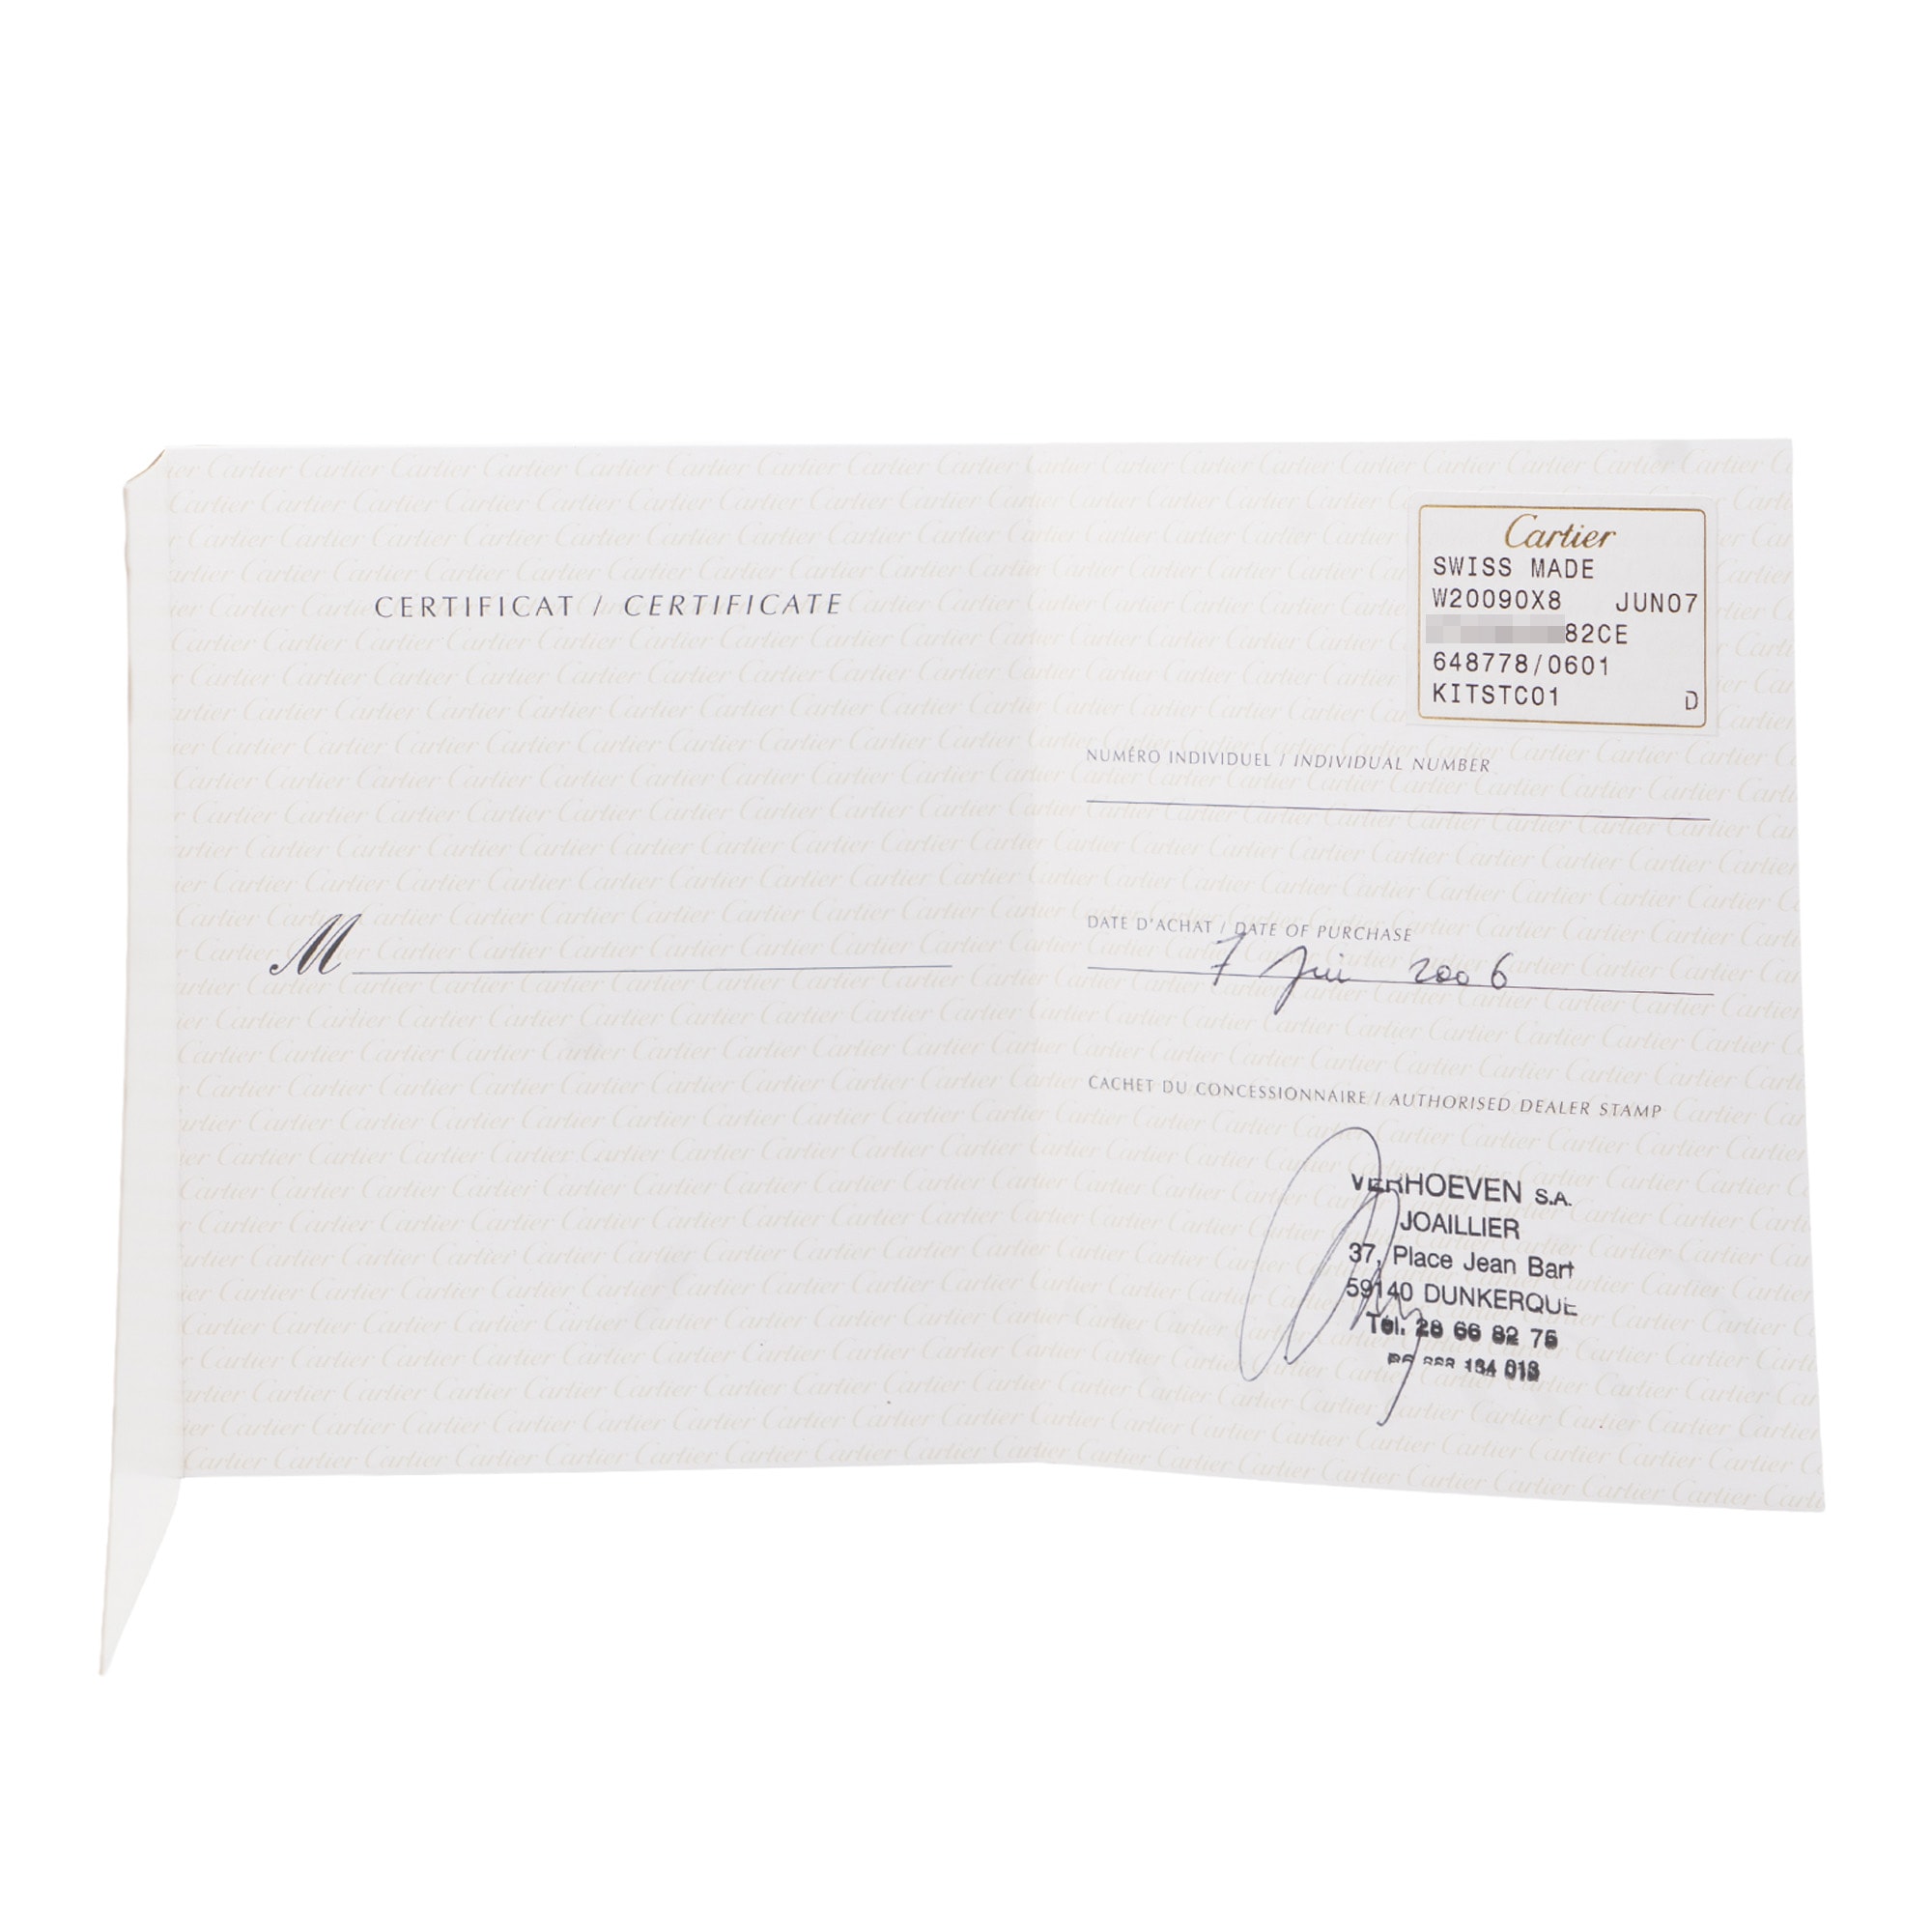 CERTIFICAT / CERTIFICATE
M
Cartier
SWISS MADE
W20090X8 JUN07
82CE
648778/0601
KITSTC01 D
NUMÉRO INDIVIDUEL / INDIVIDUAL NUMBER
DATE D'ACHAT / DATE OF PURCHASE
7 Jui 2006
CACHET DU CONCESSIONNAIRE / AUTHORISED DEALER STAMP
VERHOEVEN S.A.
JOAILLIER
37, Place Jean Bart
59140 DUNKERQUE
Tél. 28 66 82 75
184 013